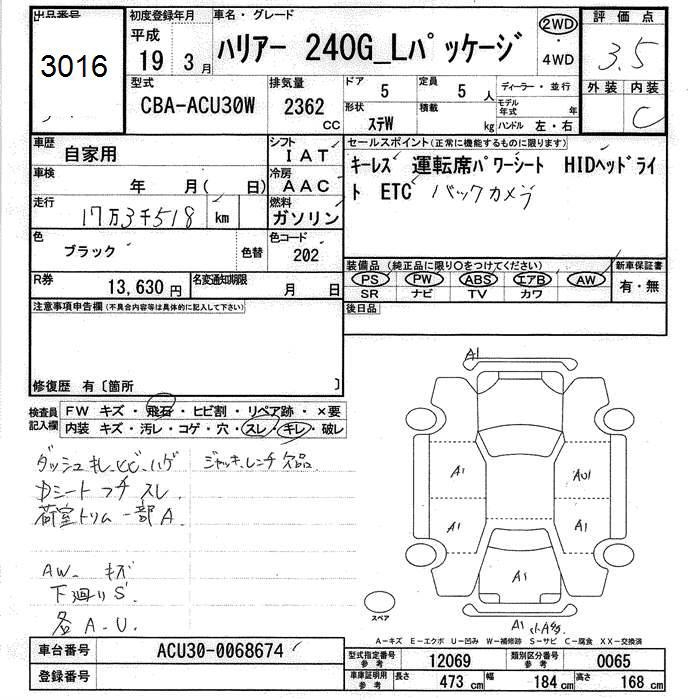 出品番号 初度登録年月 車名・グレード 2WD 評価点
平成
3016 19 3月 ハリアー 240G_Lパッケージ ・ 3.5
4WD
型式 排気量 ドア 定員 ディーラー・並行 外装 内装
CBA-ACU30W 2362 5 5人 モデル年式 年 C
CC 形状 積載
ステW kg ハンドル 左・右
車歴 自家用 シフト IAT セールスポイント(正常に機能するものに限ります)
車検 年 月( 日) 冷房 AAC キーレス 運転席パワーシート HIDヘッドライ
走行 17万3千518 km 燃料 ガソリン ト ETC バックカメラ
色 ブラック 色替 色コード 202
装備品(純正品に限り○をつけてください) 新車保証書
R券 13,630円 名変通知期限 月 日 PS PW ABS エアB AW 有・無
SR ナビ TV カワ
注意事項申告欄(不具合内容等は具体的に記入して下さい) 後日品
修復歴 有〔箇所 〕
A1
検査員 FW キズ・飛石・ヒビ割・リペア跡・×要
記入欄 内装 キズ・汚レ・コゲ・穴・スレ・キレ・破レ
ダッシュ キレ、ヒビ、ハゲ ジャッキ、レンチ 欠品
Dシート フチ スレ.
荷室トリム 一部A.
A1 AU1
A1 A1
AW. キズ
下廻りS
各A.U.
A1
スペア
A1 小A多
A-キズ E-エクボ U-凹み W-補修跡 S-サビ C-腐食 XX-交換済
車台番号 ACU30-0068674 型式指定番号 参考 12069 類別区分番号 参考 0065
登録番号 車庫証明用 参考 長さ 473 cm 幅 184 cm 高さ 168 cm